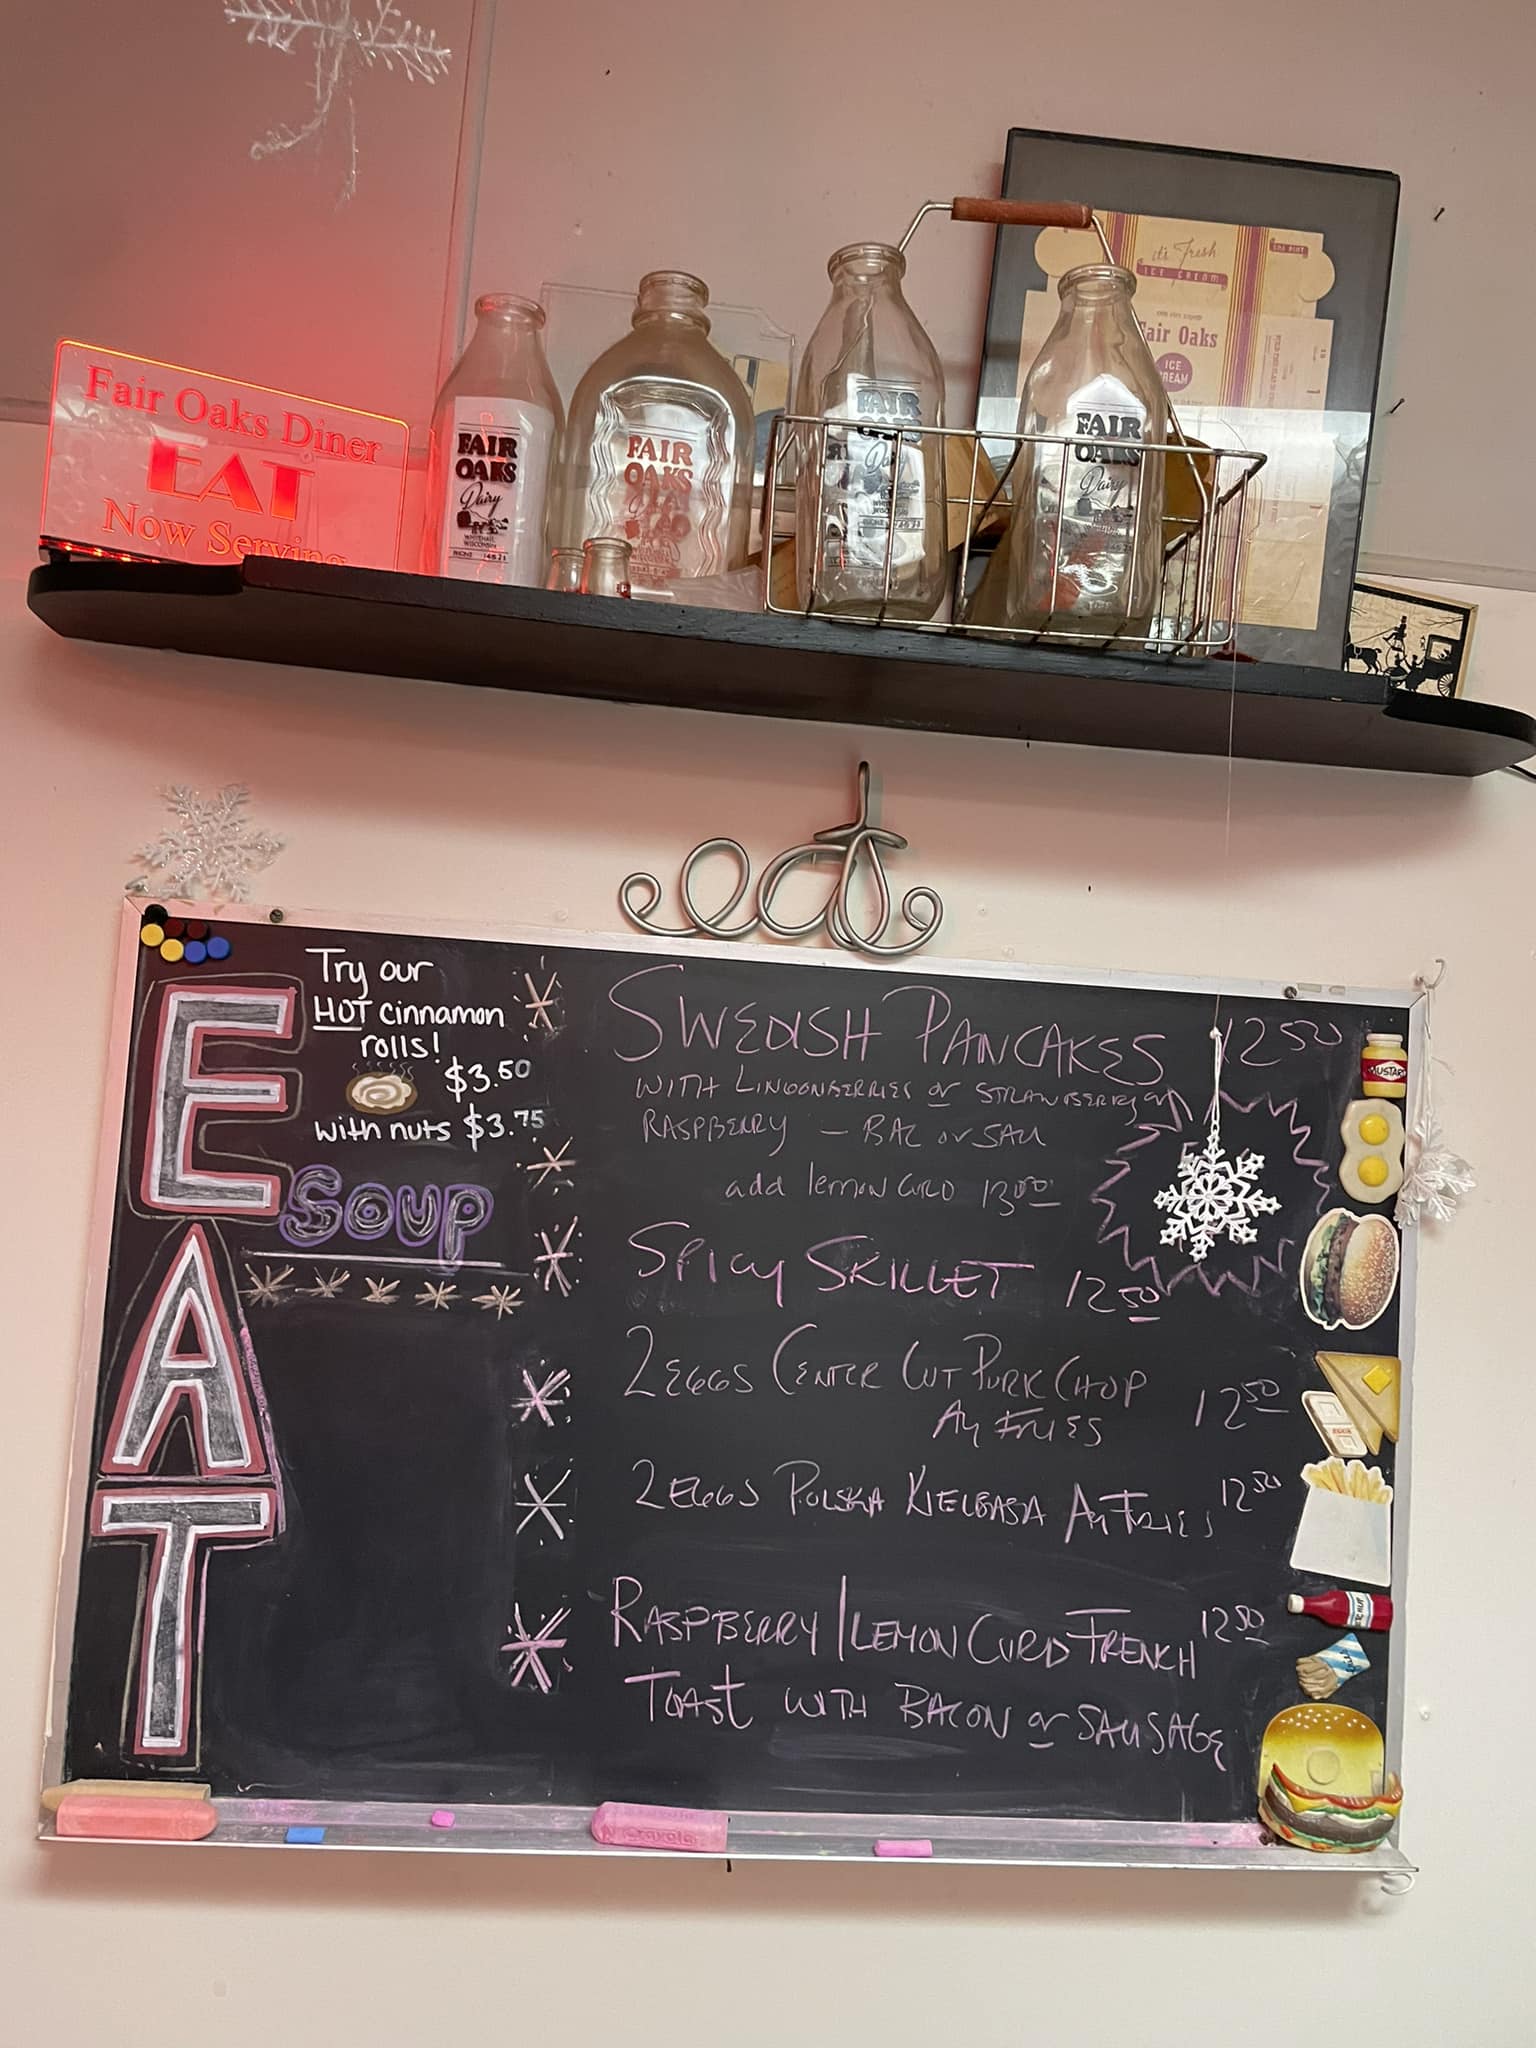 it's Fresh
ICE CREAM
ONE PINT
Fair Oaks
ICE
CREAM
Fair Oaks Diner
EAT
Now Serving
FAIR
OAKS
Dairy
WHITEHALL
WISCONSIN
PHONE
FAIR
OAKS
FAIR
OAKS
Dairy
FAIR
OAKS
Dairy
eat
EAT
Try our
HOT cinnamon
rolls!
$3.50
with nuts $3.75
SOUP
SWEDISH PANCAKES 12 50
WITH LINGONBERRIES or STRAWBERRY or
RASPBERRY – BAC or SAU
add lemon CURD 13 00
SPICY SKILLET 12 50
2 EGGS CENTER CUT PORK CHOP
AM FRIES 12 50
2 EGGS POLSKA KIELBASA AM FRIES 12 50
RASPBERRY / LEMON CURD FRENCH 12 50
TOAST WITH BACON or SAUSAGE
MUSTARD
Crayola